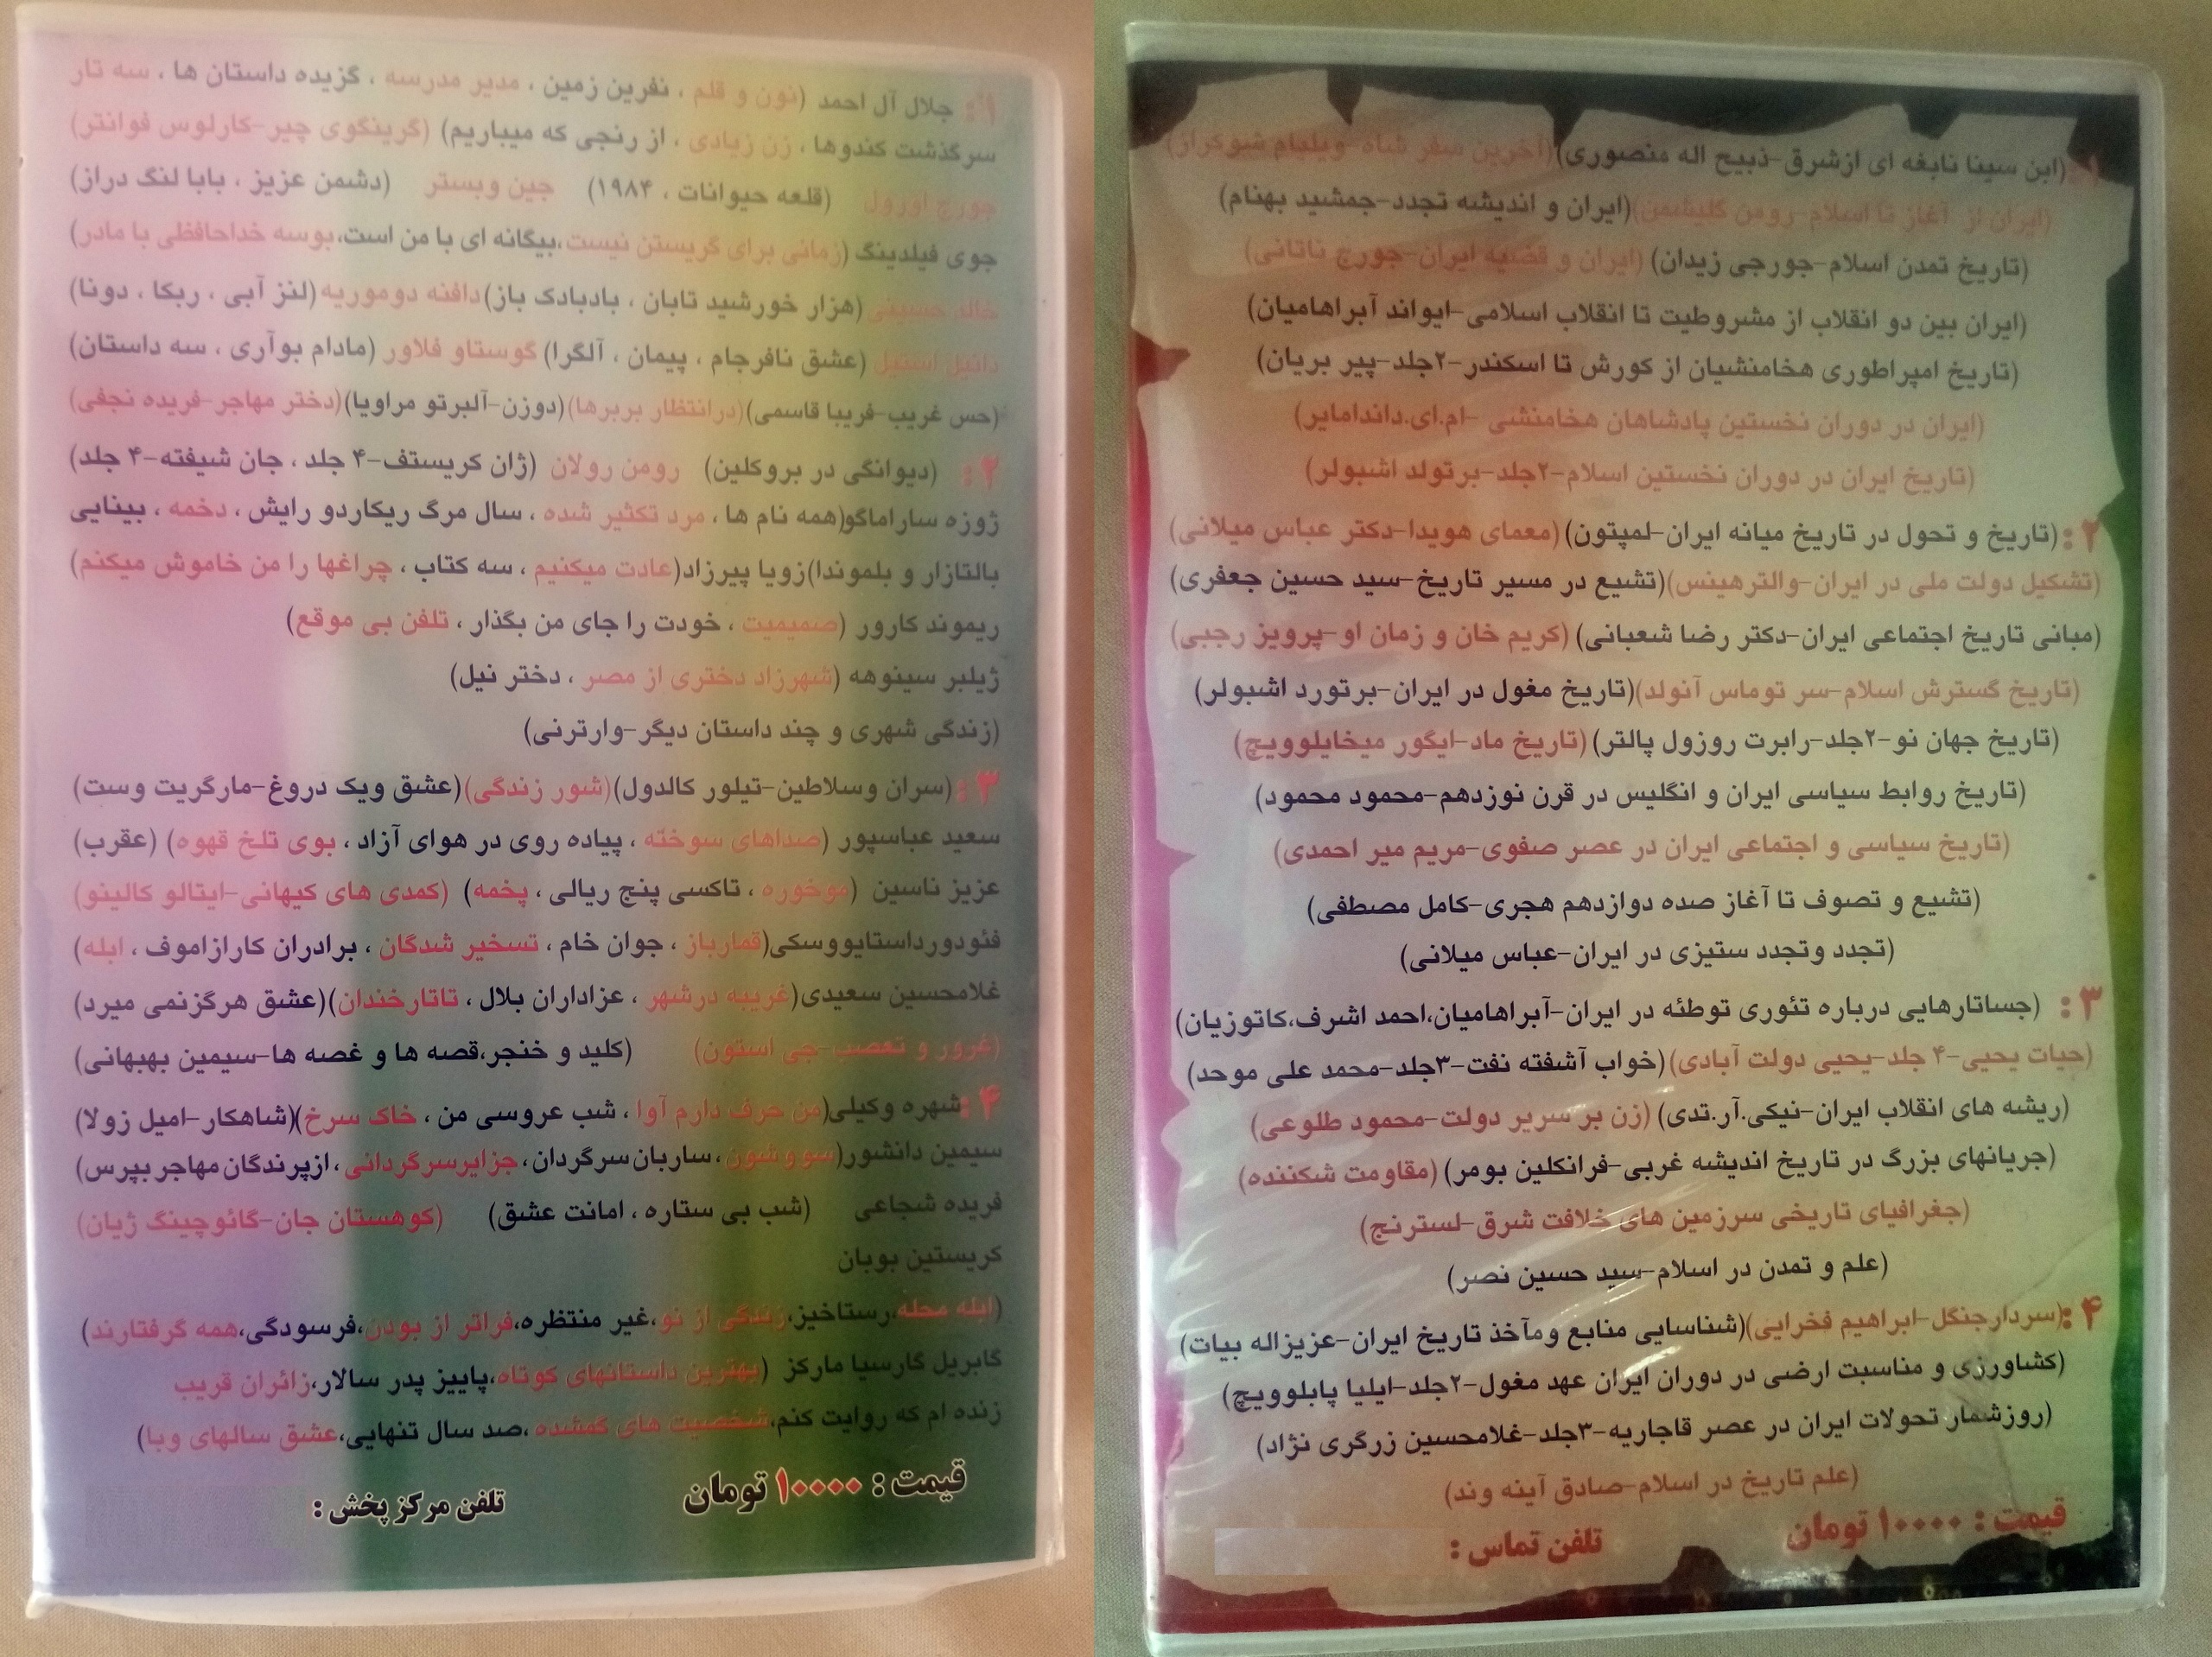 ۱: جلال آل احمد (نون و قلم ، نفرین زمین ، مدیر مدرسه ، گزیده داستان ها ، سه تار
سرگذشت کندوها ، زن زیادی ، از رنجی که میباریم) (گرینگوی چیر-کارلوس فوانتر)
جورج اورول (قلعه حیوانات ، ۱۹۸۴) جین وبستر (دشمن عزیز ، بابا لنگ دراز)
جوی فیلدینگ (زمانی برای گریستن نیست،بیگانه ای با من است،بوسه خداحافظی با مادر)
خالد حسینی (هزار خورشید تابان ، بادبادک باز)دافنه دوموریه(لنز آبی ، ربکا ، دونا)
دانیل استیل (عشق نافرجام ، پیمان ، آلگرا) گوستاو فلاور (مادام بوآری ، سه داستان)
(حس غریب-فریبا قاسمی)(درانتظار بربرها)(دوزن-آلبرتو مراویا)(دختر مهاجر-فریده نجفی)
۲: (دیوانگی در بروکلین) رومن رولان (ژان کریستف-۴ جلد ، جان شیفته-۴ جلد)
ژوزه ساراماگو(همه نام ها ، مرد تکثیر شده ، سال مرگ ریکاردو رایش ، دخمه ، بینایی
بالتازار و بلموندا)زویا پیرزاد(عادت میکنیم ، سه کتاب ، چراغها را من خاموش میکنم)
ریموند کارور (صمیمیت ، خودت را جای من بگذار ، تلفن بی موقع)
ژیلبر سینوهه (شهرزاد دختری از مصر ، دختر نیل)
(زندگی شهری و چند داستان دیگر-وارترنی)
۳: (سران وسلاطین-تیلور کالدول)(شور زندگی)(عشق ویک دروغ-مارگریت وست)
سعید عباسپور (صداهای سوخته ، پیاده روی در هوای آزاد ، بوی تلخ قهوه) (عقرب)
عزیز ناسین (موخوره ، تاکسی پنج ریالی ، پخمه) (کمدی های کیهانی-ایتالو کالینو)
فئودورداستایووسکی(قمارباز ، جوان خام ، تسخیر شدگان ، برادران کارازاموف ، ابله)
غلامحسین سعیدی(غریبه درشهر ، عزاداران بلال ، تاتارخندان)(عشق هرگزنمی میرد)
(غرور و تعصب-جی استون) (کلید و خنجر،قصه ها و غصه ها-سیمین بهبهانی)
۴:شهره وکیلی(من حرف دارم آوا ، شب عروسی من ، خاک سرخ)(شاهکار-امیل زولا)
سیمین دانشور(سووشون ، ساربان سرگردان، جزایرسرگردانی ، ازپرندگان مهاجربپرس)
فریده شجاعی (شب بی ستاره ، امانت عشق) (کوهستان جان-گائوچینگ ژیان)
کریستین بوبان
(ابله محله،رستاخیز،زندگی از نو،غیر منتظره،فراتر از بودن،فرسودگی،همه گرفتارند)
گابریل گارسیا مارکز (بهترین داستانهای کوتاه،پاییز پدر سالار،زائران قریب
زنده ام که روایت کنم،شخصیت های گمشده ،صد سال تنهایی،عشق سالهای وبا)
قیمت : ۱۰۰۰۰ تومان
تلفن مرکز پخش :
۱: (ابن سینا نابغه ای ازشرق-ذبیح اله منصوری)(آخرین سفر شاه-ویلیام شوکراز)
(ایران از آغاز تا اسلام-رومن گلیشمن)(ایران و اندیشه تجدد-جمشید بهنام)
(تاریخ تمدن اسلام-جورجی زیدان) (ایران و قضیه ایران-جورج ناتانی)
(ایران بین دو انقلاب از مشروطیت تا انقلاب اسلامی-ایواند آبراهامیان)
(تاریخ امپراطوری هخامنشیان از کورش تا اسکندر-۲جلد-پیر بریان)
(ایران در دوران نخستین پادشاهان هخامنشی -ام.ای.داندامایر)
(تاریخ ایران در دوران نخستین اسلام-۲جلد-برتولد اشبولر)
۲: (تاریخ و تحول در تاریخ میانه ایران-لمپتون) (معمای هویدا-دکتر عباس میلانی)
(تشکیل دولت ملی در ایران-والترهینس)(تشیع در مسیر تاریخ-سید حسین جعفری)
(مبانی تاریخ اجتماعی ایران-دکتر رضا شعبانی) (کریم خان و زمان او-پرویز رجبی)
(تاریخ گسترش اسلام-سر توماس آنولد)(تاریخ مغول در ایران-برتورد اشبولر)
(تاریخ جهان نو-۲جلد-رابرت روزول پالتر) (تاریخ ماد-ایگور میخایلوویچ)
(تاریخ روابط سیاسی ایران و انگلیس در قرن نوزدهم-محمود محمود)
(تاریخ سیاسی و اجتماعی ایران در عصر صفوی-مریم میر احمدی)
(تشیع و تصوف تا آغاز صده دوازدهم هجری-کامل مصطفی)
(تجدد وتجدد ستیزی در ایران-عباس میلانی)
۳: (جساتارهایی درباره تئوری توطئه در ایران-آبراهامیان،احمد اشرف،کاتوزیان)
(حیات یحیی-۴ جلد-یحیی دولت آبادی)(خواب آشفته نفت-۳جلد-محمد علی موحد)
(ریشه های انقلاب ایران-نیکی.آر.تدی) (زن بر سریر دولت-محمود طلوعی)
(جریانهای بزرگ در تاریخ اندیشه غربی-فرانکلین بومر) (مقاومت شکننده)
(جغرافیای تاریخی سرزمین های خلافت شرق-لسترنج)
(علم و تمدن در اسلام-سید حسین نصر)
۴:(سردارجنگل-ابراهیم فخرایی)(شناسایی منابع ومآخذ تاریخ ایران-عزیزاله بیات)
(کشاورزی و مناسبت ارضی در دوران ایران عهد مغول-۲جلد-ایلیا پابلوویچ)
(روزشمار تحولات ایران در عصر قاجاریه-۳جلد-غلامحسین زرگری نژاد)
(علم تاریخ در اسلام-صادق آینه وند)
قیمت : ۱۰۰۰۰ تومان
تلفن تماس :